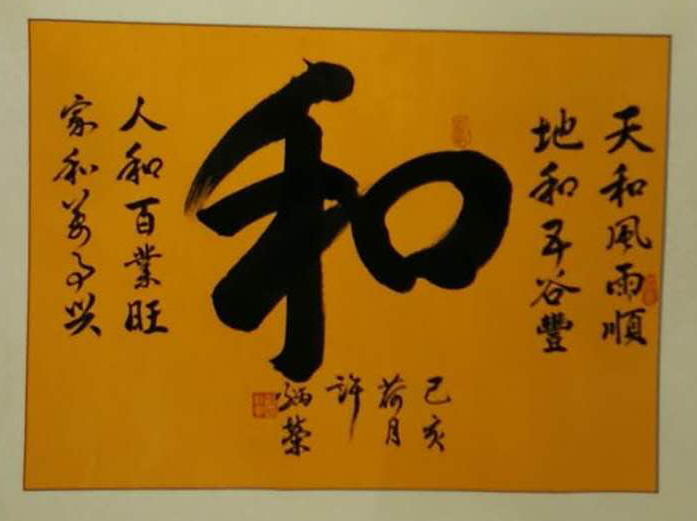 天和風雨順
地和五谷豐
和
人和百業旺
家和萬事興
己亥
荷月
許
炳榮